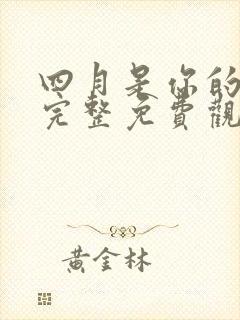 四月是你的
完整免費觀
黃金林